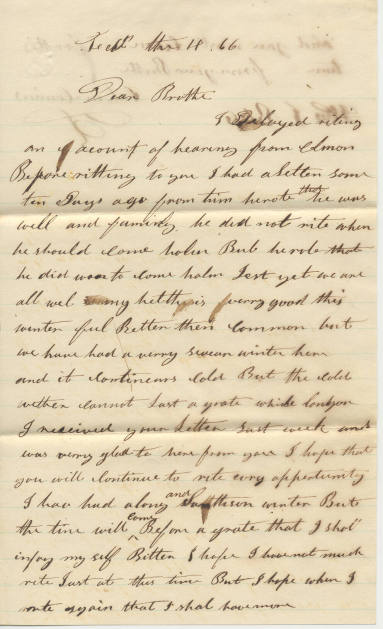 Feb the 18. 66
Dear Brothe
I Delayed riting
on acount of hearing from Edmon
Before ritting to you I had a Letten some
ten Days ago from him he rote that he was
well and family, he did not rite when
he should Come holm But he rote that
he did want to Come holm Jest yet we are
all wel my helth is verry good this
winten ful Betten then Common but
we have had a verry winten here
and it Continers Cold But the Cold
wethen Cannot Last a grate while longon
I received your Letten Last week and
was verry glad to here from you I hope that
you will Continue to rite evry oppertunity
I hav had a long and winten But
the time will Come Before a grate that I shal
injoy my self Bitten I hope I have not much
rite Just at this time But I hope when I
rote again that I shal have more